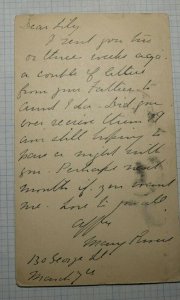 Dear Lily
I sent you two
or three weeks ago
a couple of letters
from your Father to
Aunt Ida. Did you
ever receive them? I
am still hoping to
have a night with
you. Perhaps next
month if you want
me. Love to you all.
Affly
Mary
130 George St.
March 7th